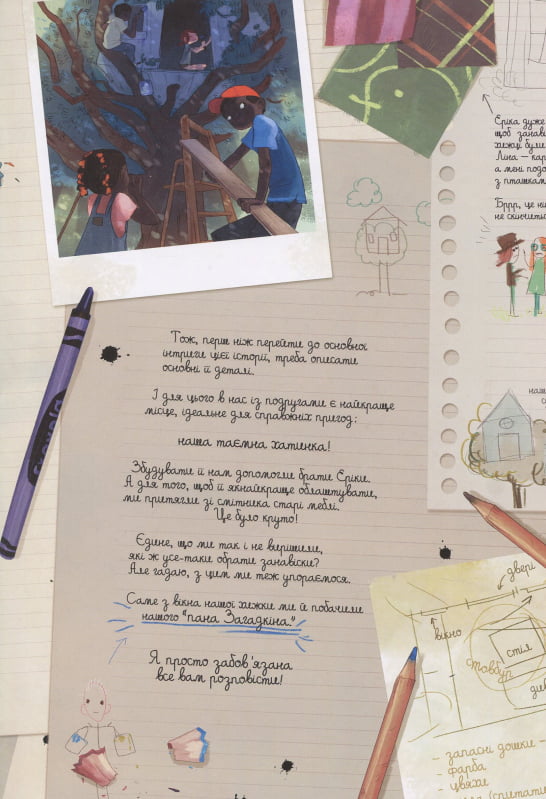 Тож, перш ніж перейти до основної
інтриги цієї історії, треба описати
основні її деталі.
І для цього в нас із подругами є найкраще
місце, ідеальне для справжніх пригод:
наша таємна хатинка!
Збудувати її нам допомогли брати Еріки.
А для того, щоб її якнайкраще облаштувати,
ми притягли зі смітника старі меблі.
Це було круто!
Єдине, що ми так і не вирішили,
які ж усе-таки обрати занавіски?
Але гадаю, з цим ми теж упораємося.
Саме з вікна нашої хижки ми й побачили
нашого "пана Загадкіна."
Я просто забов'язана
все вам розповісти!
Еріка дуже
щоб занаві
хижці були
Ліна — кар
а мені подо
з пташкам
Бррр, це ні
не скінчить
наш
двері
вікно
стіл
стовбур
див
- запасні дошки -
- фарба
- цвяхи